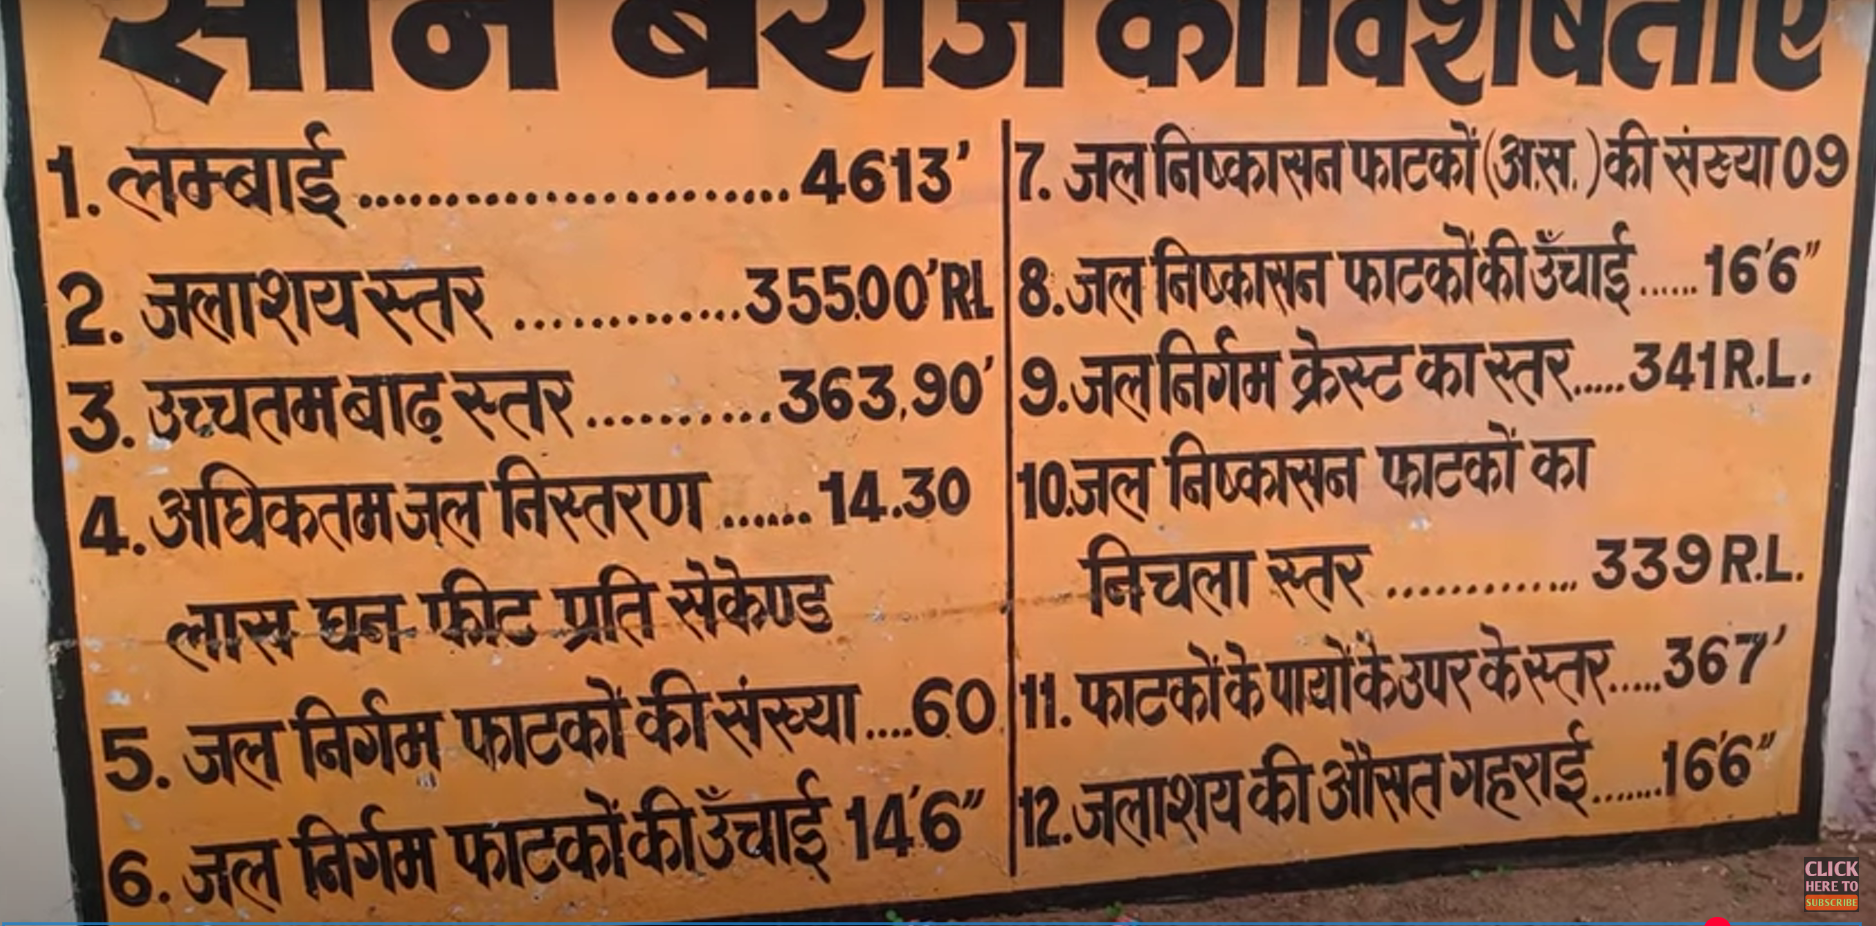 सोन बराज की विशेषताएं
1. लम्बाई ........................ 4613’
2. जलाशय स्तर ............. 355.00’ RL
3. उच्चतम बाढ़ स्तर .......... 363.90’
4. अधिकतम जल निस्तरण ...... 14.30
लाख घन फीट प्रति सेकेण्ड
5. जल निर्गम फाटकों की संख्या .... 60
6. जल निर्गम फाटकों की उँचाई 14’6”
7. जल निष्कासन फाटकों (अ.स.) की संख्या 09
8. जल निष्कासन फाटकों की उँचाई ...... 16’6”
9. जल निर्गम क्रेस्ट का स्तर ..... 341 R.L.
10. जल निष्कासन फाटकों का
निचला स्तर ............ 339 R.L.
11. फाटकों के पायों के उपर के स्तर ..... 367’
12. जलाशय की औसत गहराई ....... 16’6”
CLICK
HERE TO
SUBSCRIBE